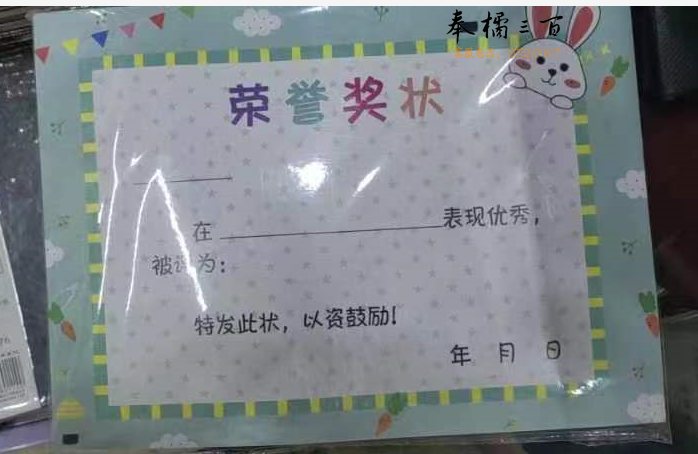 奉橘三百
荣誉奖状
在 表现优秀，
被评为：
特发此状，以资鼓励！
年 月 日